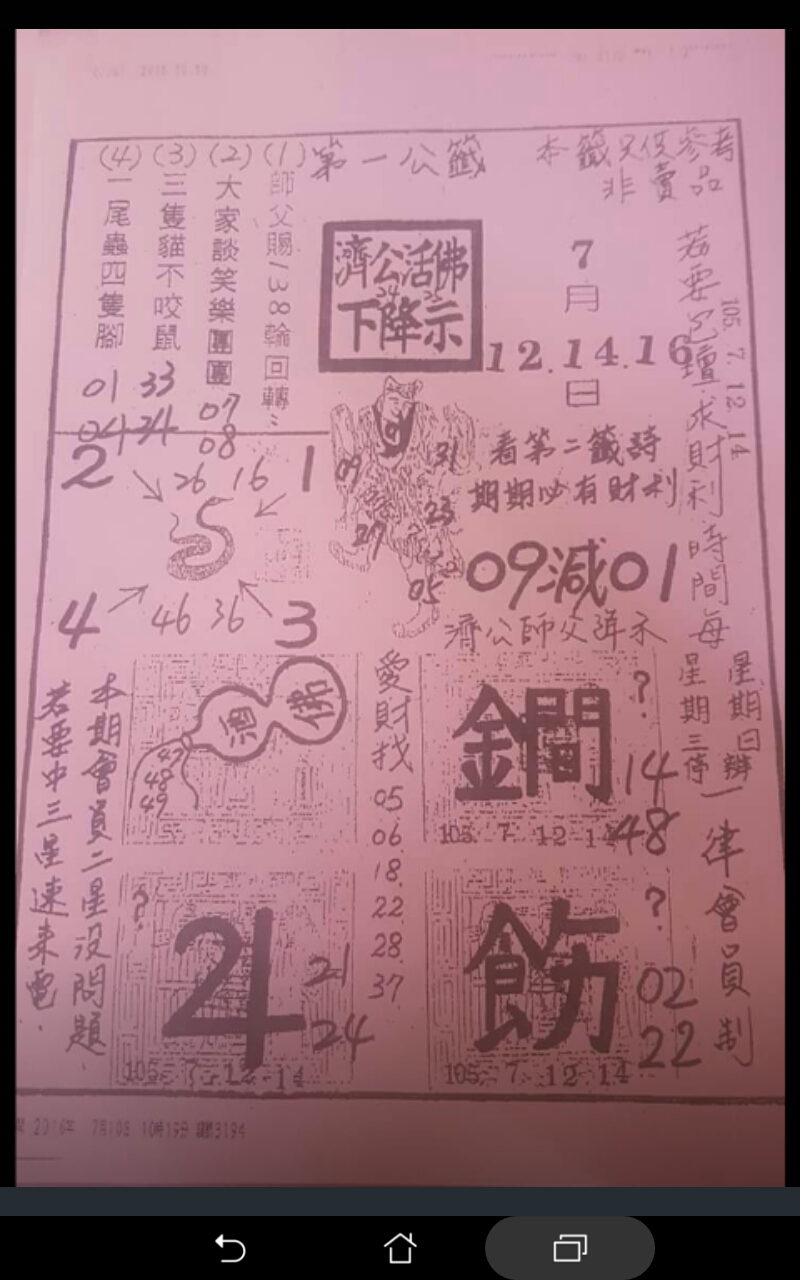 第一公籤
本籤只供參考
非賣品
(1) 師父賜138輪回轉
(2) 大家談笑樂團團 07 08
(3) 三隻貓不咬鼠 33 24
(4) 一尾蟲四隻腳 01 04
濟公活佛
下降示
7
月
12.14.16
日
若要過壇求財利時間每
105. 7. 12. 14
星期日辦
星期三停
一律會員制
看第二籤詩
期期必有財利
09減01
濟公師父降示
09 31
23
27
05
2 26 16 1
5
4 46 36 3
酒 佛
47
48
49
愛財找
05
06
18
22
28
37
鐗 ?
14
48
105. 7 12 14
4 ?
21
24
105. 7. 12. 14
飭 ?
02
22
105. 7 12 14
本期會員二星沒問題
若要中三星速來電
2016年 7月10日 10時19分 編號3194